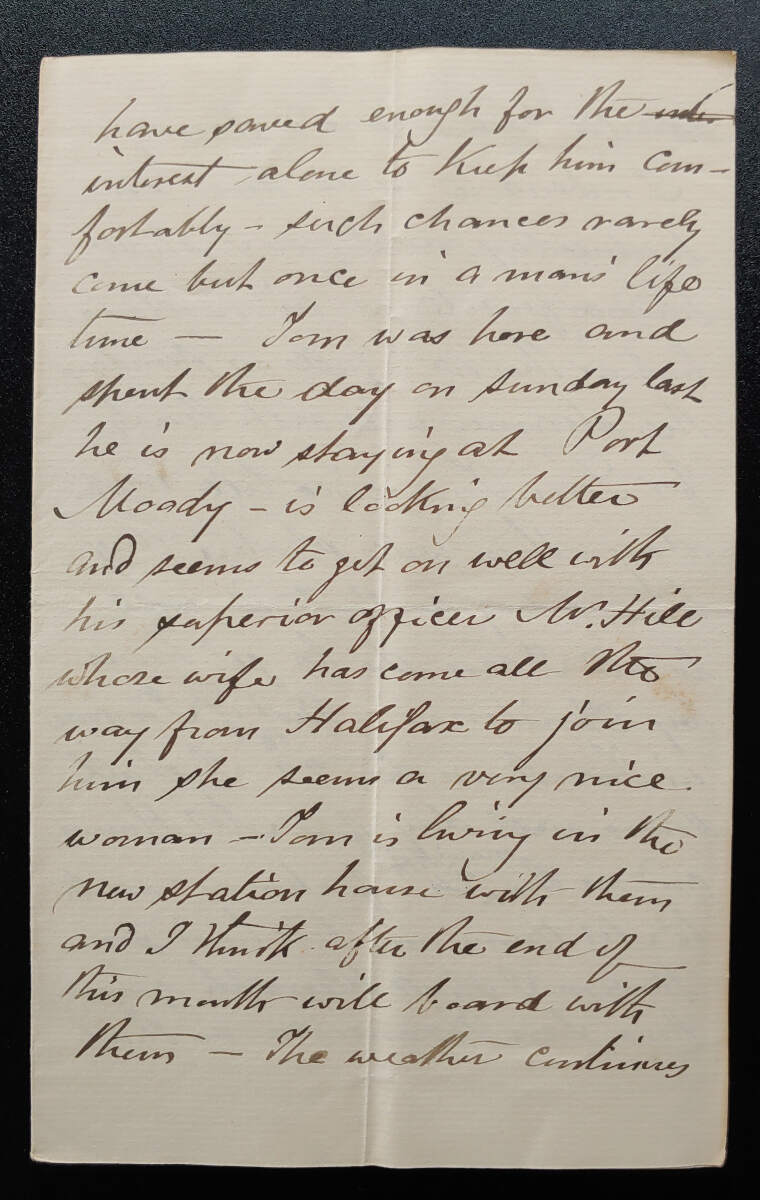 have saved enough for the
interest alone to Keep him com-
fortably - such chances rarely
come but once in a man's life
time — Tom was here and
spent the day on sunday last
he is now staying at Port
Moody - is looking better
and seems to get on well with
his superior officer Mr. Hill
whose wife has come all the
way from Halifax to join
him she seems a very nice
woman - Tom is living in the
new station house with them
and I think after the end of
this month will board with
them — The weather continues